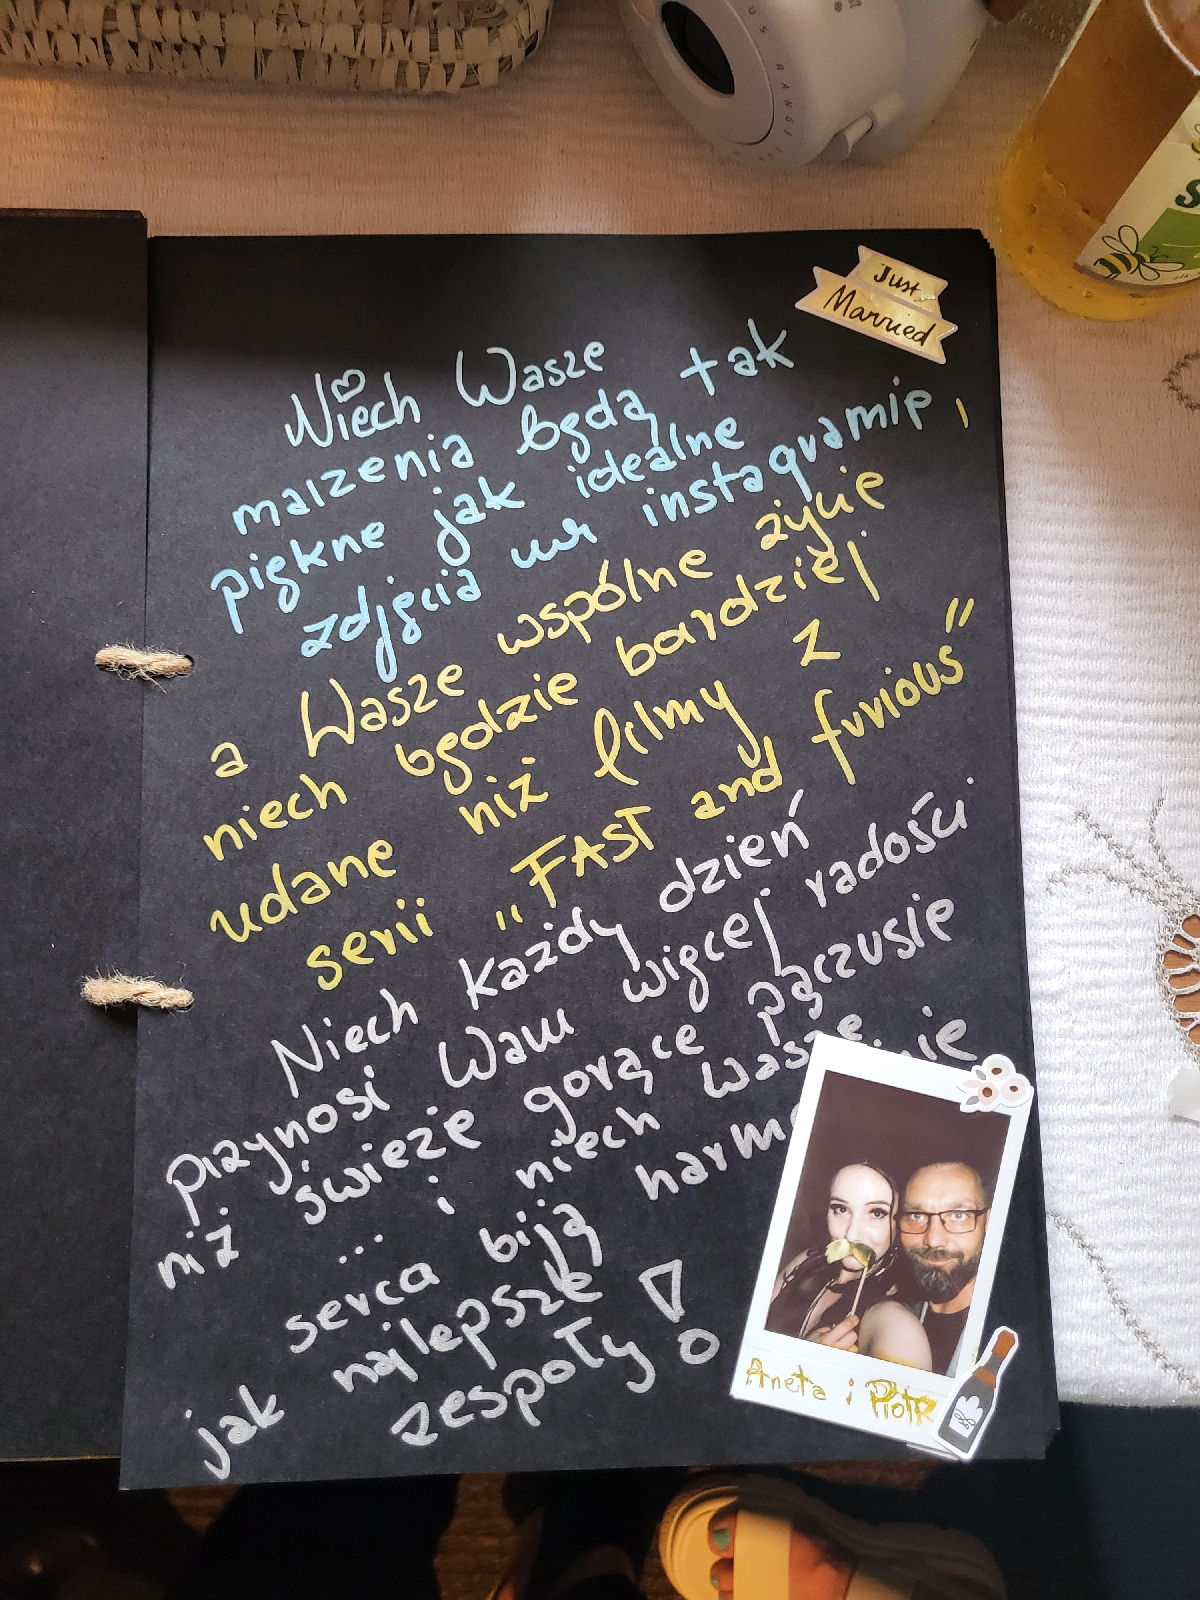 Just
Married
Niech Wasze
marzenia będą tak
piękne jak idealne
zdjęcia w instagramie,
a Wasze wspólne życie
niech będzie bardziej
udane niż filmy z
serii „FAST and furious"
Niech każdy dzień
przynosi Wam więcej radości
niż świeże gorące pączusie
... i niech wasze
serca biją
jak najlepsze
zespoły!
Aneta i Piotr